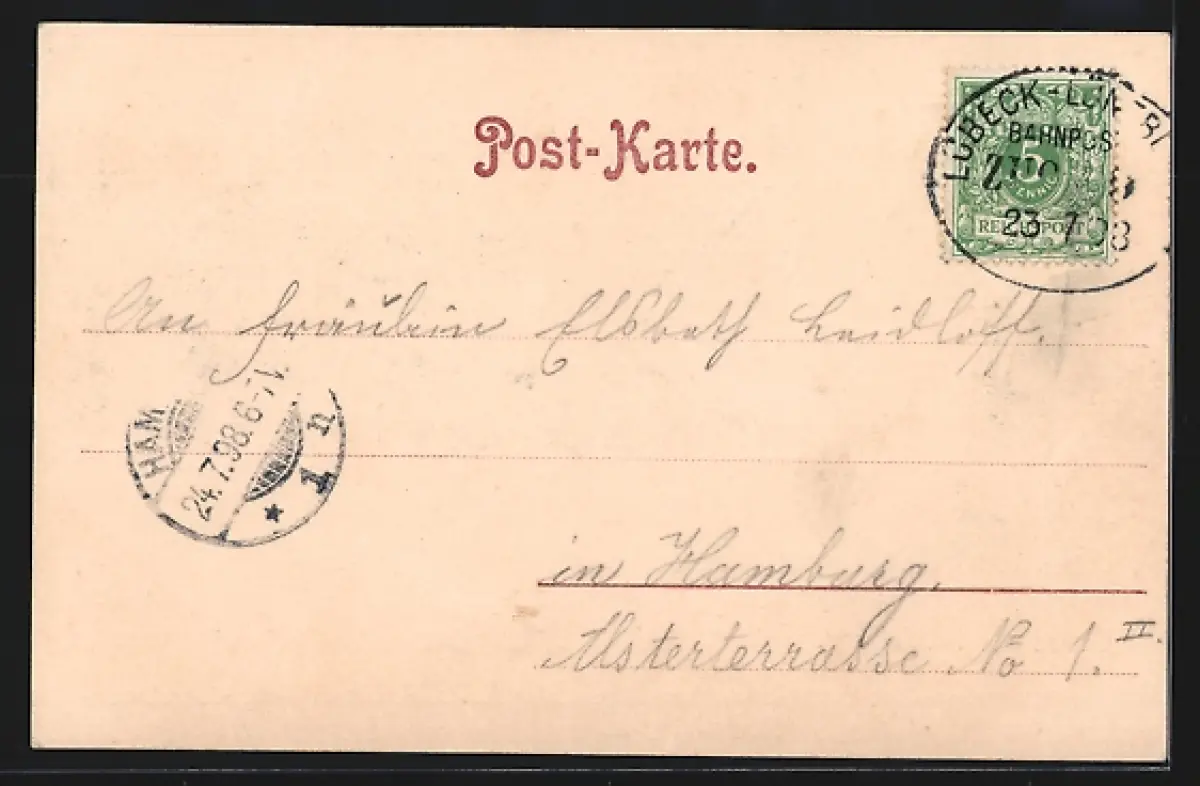 Post-Karte.
LÜBECK - LÜNEB
BAHNPOS
ZUG
23 7 98
5
PFENNIG
REICHSPOST
An Fräulein Elsbeth Leidloff.
HAM
24.7.98.6-7N.
* 1 n
in Hamburg,
Alsterterrasse No 1. II.